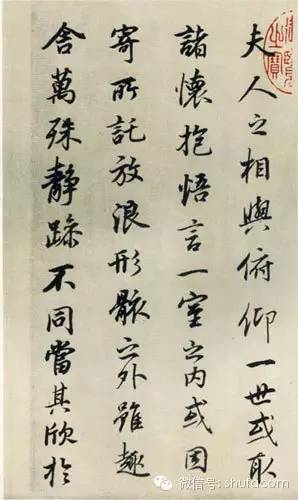 夫人之相與俯仰一世或取
諸懷抱悟言一室之內或因
寄所託放浪形骸之外雖趣
舍萬殊静躁不同當其欣於
微信号: shufa-cn